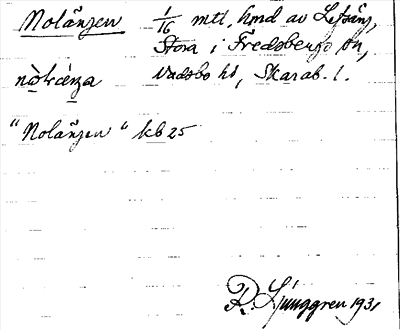 Nolängen 1/16 mtl, hmd av Lersäng,
Stora i Fredsbergs sn,
Vadsbo hd, Skarab. l.
"Nolängen" kb 25
R. Ljunggren 1931